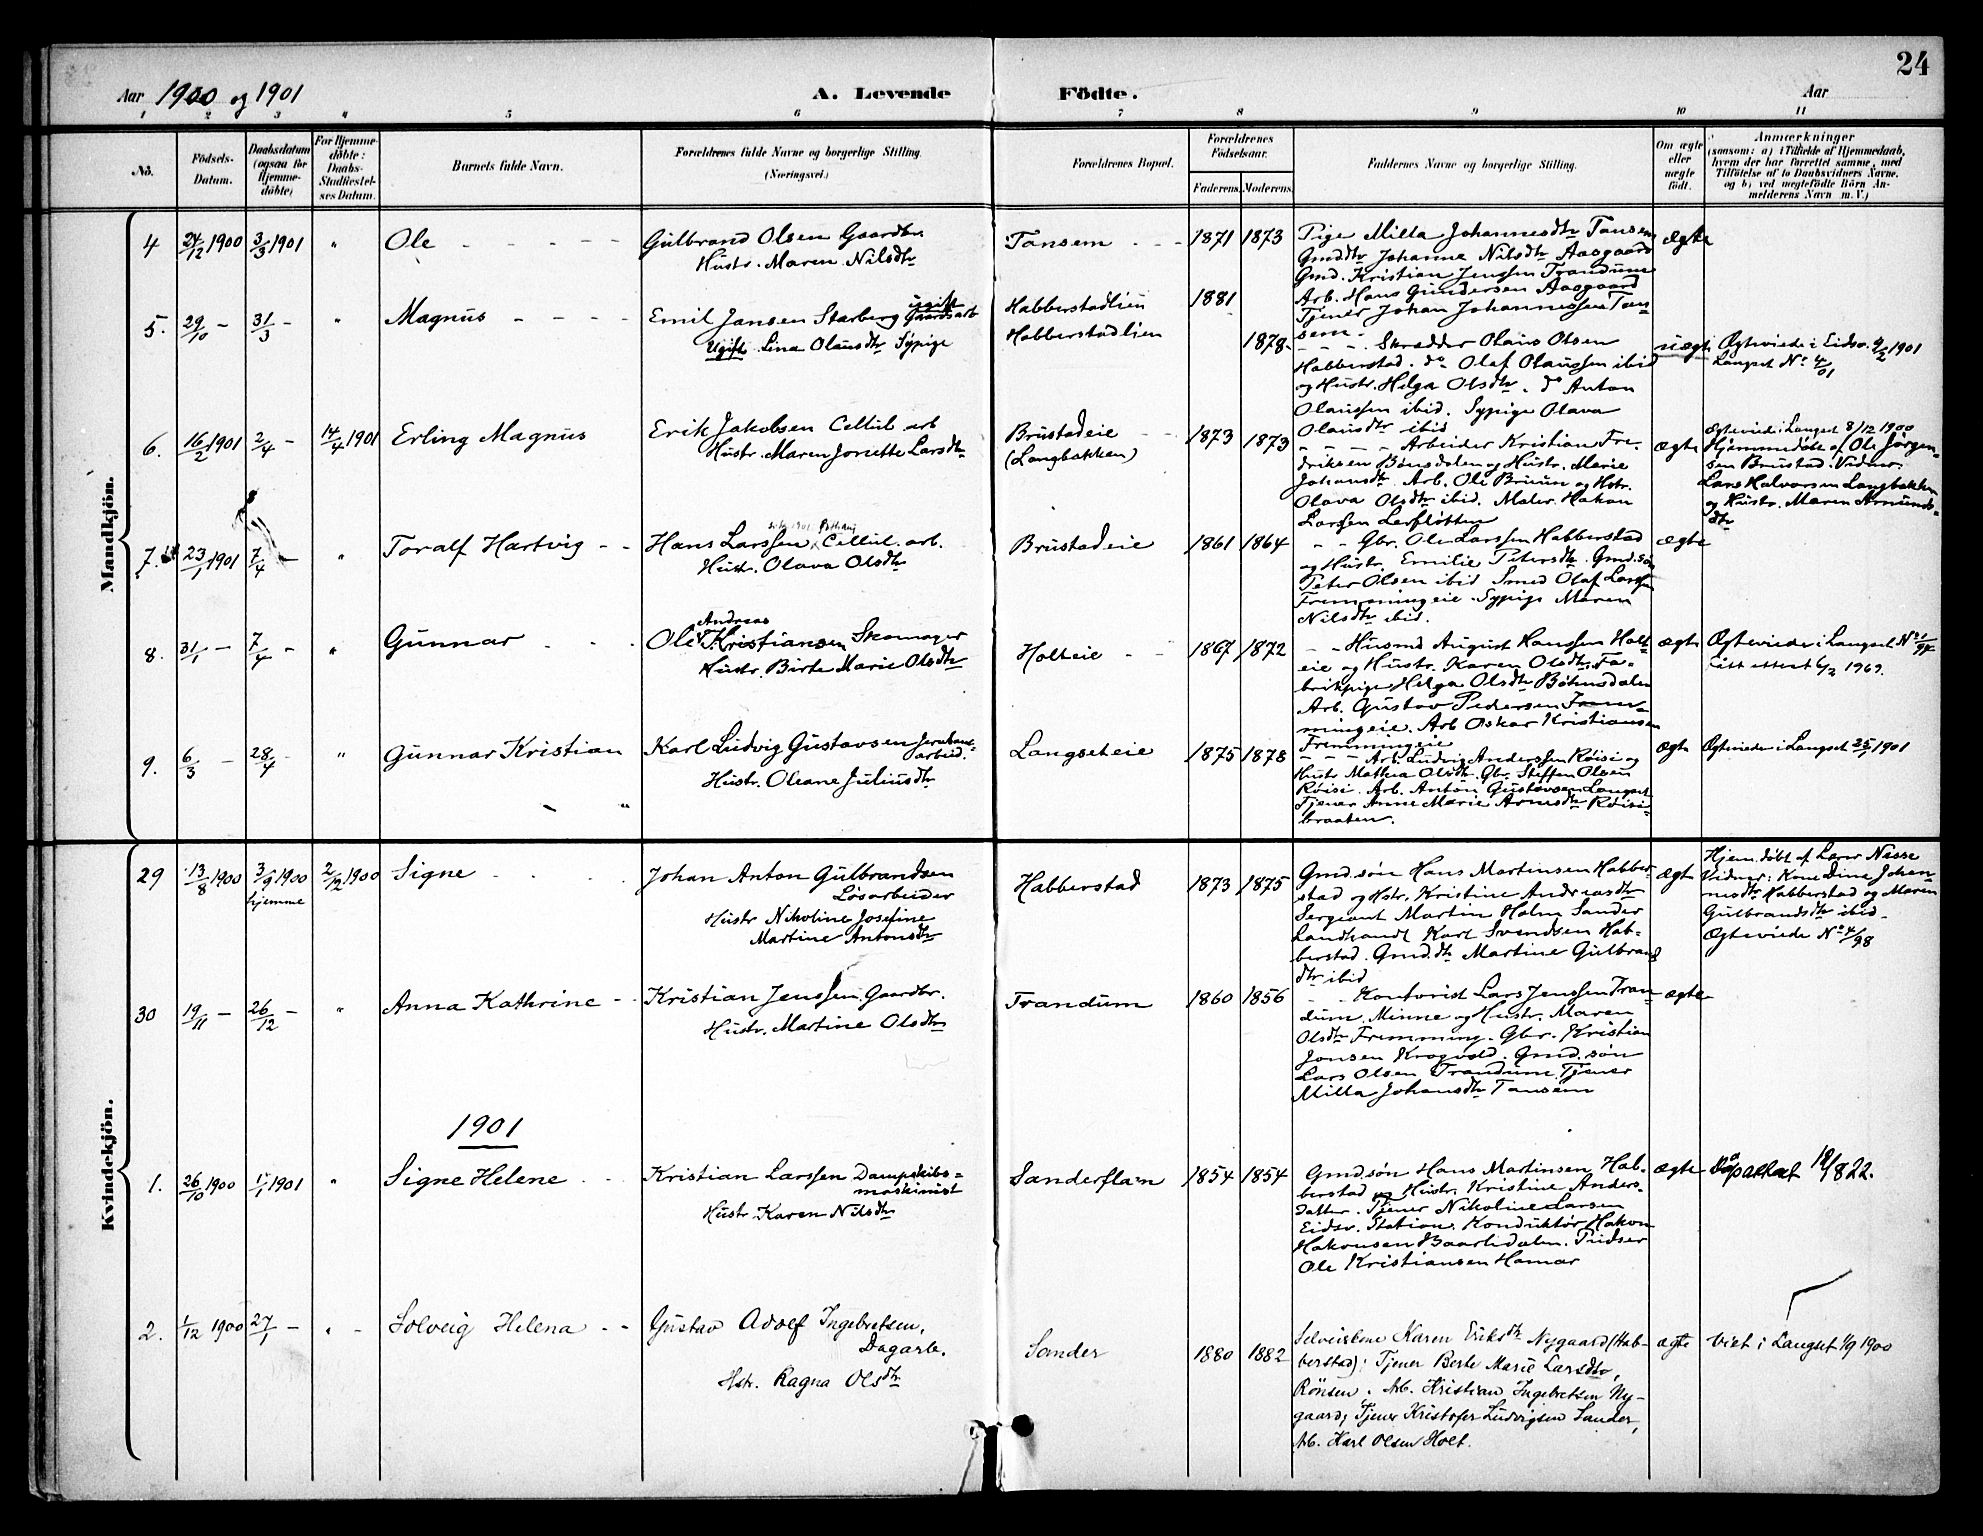 24
Aar 1900 og 1901
A. Levende Födte.
Aar
1 2 3 4 5 6 7 8 9 10 11
No.
Födsels-
Datum.
Daabsdatum
(ogsaa for
Hjemme-
döbte)
For Hjemme-
döbte:
Daabs-
Stadfæstel-
ses Datum.
Barnets fulde Navn.
Forældrenes fulde Navne og borgerlige Stilling.
(Næringsvei.)
Forældrenes Bopæl.
Forældrenes
Födselsaar.
Faderens. Moderens.
Faddernes Navne og borgerlige Stilling.
Om ægte
eller
uægte
födt.
Anmærkninger
(saasom: a) i Tilfælde af Hjemmedaab,
hvem der har forrettet samme, med
Tilföielse af to Daabsvidners Navne.
og b) ved uægtefödte Börn An-
melderens Navn m. V.)
Mandkjön.
4 24/12 1900 3/3 1901 " Ole
Gulbrand Olsen Gaardbr.
Hustr. Maren Nilsdtr
Tansem 1871 1873
Pige Milla Johannesdtr Tansem
Gmddtr Johanne Nilsdtr Aasgaard
Gmd. Kristian Jenssen Trandum
Arb. Hans Gundersen Aasgaard
Tjener Johan Johannessen Tan-
sem
ægte
5. 29/10 - 31/3 - " Magnus
Emil Jansen Starberg ugift Gaardsarb
Ugift Lina Olausdtr Sypige
Habberstadlien
Habberstadlien
1881
1878
Skrædder Olaus Olsen
Habberstad. do Olaf Olaussen ibid
og Hustr. Helga Olsdtr. do Anton
Olaussen ibid. Sypige Olava
Olausdtr ibid
uægte
Ægteviede i Eidsv. 9/2 1901
Langset No 4/01
6. 16/2 1901 2/4 - 14/4 1901 Erling Magnus
Erik Jakobsen Cellul. arb
Hustr. Maren Jonette Larsdtr
Brustadeie
(Langbakken)
1873 1873
Arbeider Kristian Fre-
driksen Bönsdalen og Hustr. Marie
Johansdtr. Arb. Ole Bruun og Hstr.
Olava Olsdtr ibid. Maler Hakon
Larssen Lerfløtten
ægte
Ægteviede i Langset 8/12 1900
Hjemmedöbt af Ole Jörgen-
sen Brustad. Vidner.
Lars Halvorsen Langbakken
og Hustr. Maren Amunds-
dtr
7. 23/1 1901 7/4 - " Toralf Hartvig
Hans Larssen Cellul. arb.
Hustr. Olava Olsdtr
Brustadeie 1861 1864
Gbr. Ole Larssen Habberstad
og Hustr. Emilie Petersdtr. Gmd.sön
Peter Olsen ibid Smed Olaf Larssen
Fremmingeie. Sypige Maren
Nilsdtr ibid.
ægte
8. 31/1 - 7/4 - " Gunnar
Andreas
Ole Kristiansen Skomager
Hustr. Birte Marie Olsdtr
Holteie 1867 1872
Husmd August Hanssen Holt-
eie og Hustr. Karen Olsdtr. Fa-
brikpige Helga Olsdtr Böhnsdalen
Arb. Gustav Pedersen Frem-
mingeie. Arb Oskar Kristiansen
Fremmingeie
ægte
Ægteviede i Langset No 1/94
9. 6/3 - 28/4 - " Gunnar Kristian
Karl Ludvig Gustavsen Jernbane-
arbeid.
Hustr. Oleane Juliusdtr
Langseteie 1875 1878
Arb. Ludvig Anderssen Röisi og
Hustr Mathea Olsdtr. Gbr. Steffen Olsen
Röisi. Arb. Anton Gustavsen Langset
Tjener Anne Marie Arnesdtr Röisi-
braaten.
ægte
Ægteviede i Langset 25/1 1901
Kvindekjön.
29 13/8 1900 3/9 1900 hjemme 2/12 1900 Signe
Johan Anton Gulbrandsen
Lösarbeider
Hustr Nikoline Josefine
Martine Antonsdtr
Habberstad 1873 1875
Gmd.sön Hans Martinsen Habber-
stad og Hstr. Kristine Andreasdtr
Sergeant Martin Holm Sander
Landhandl Karl Svendsen Hab-
berstad. Gmd.dtr Martine Gulbrands
dtr ibid
ægte
Hjem.döbt af Lars Næsse
Vidner: Kone Dine Johan-
nesdtr Habberstad og Maren
Gulbrandsdtr ibid.
Ægteviede No 4/98
30 19/11 - 26/12 - " Anna Kathrine
Kristian Jenssen Gaardbr.
Hustr. Martine Olsdtr
Trandum 1860 1856
Kontorist Lars Jenssen Tran-
dum, Minne og Hustr. Maren
Olsdtr Fremming. Gbr. Kristian
Jonsen Krogvold. Gmd.sön
Lars Olsen Trandum. Tjener
Milla Johansdtr Tansem
ægte
1901
1. 26/10 1900 1/1 1901 " Signe Helene
Kristian Larssen Dampskibs-
maskinist
Hustr. Karen Nilsdtr
Sanderflaen 1854 1854
Gmd.sön Hans Martinsen Hab-
berstad og Hustr. Kristine Anders-
datter. Tjener Nikoline Larsen
Eidsv. Station. Konduktör Hakon
Hakonsen Baarlidalen. Pudser
Ole Kristiansen Hamar
ægte
Dåpsattest
2. 1/12 1900 27/1 - " - Solveig Helena
Gustav Adolf Ingebretsen,
Dagarb.
Hstr. Ragna Olsdtr
Sander 1880 1882
Selveierkone Karen Eriksdtr Nygaard (Hab-
berstad); Tjener Berte Marie Larsdtr,
Rönsen. Arb. Kristian Ingebretsen Ny-
gaard; Tjener Kristofer Ludvigsen Sander,
Arb. Karl Olsen Holt.
ægte
Viet i Langset 1/9 1900